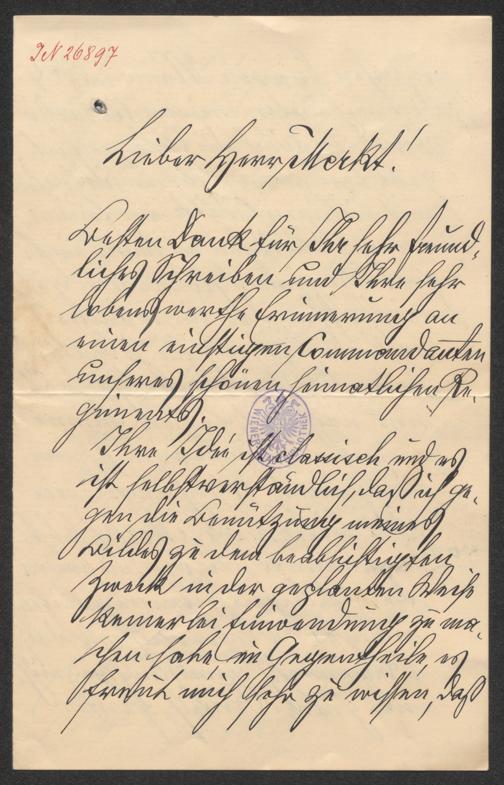 IN 26897
Lieber Herr Merkt!
Besten Dank für Ihr sehr freund-
liches Schreiben und Ihre sehr
lobenswerthe Erinnerung an
einen einstigen Commandanten
unseres schönen heimatlichen Re-
giments.
Ihre Idée ist classisch und es
ist selbstverständlich, daß ich ge-
gen die Benützung meines
Bildes zu dem beabsichtigten
Zweck in der geplanten Weise
keinerlei Einwendung zu ma-
chen habe, im Gegentheile, es
freut mich sehr zu wissen, daß
WIENER